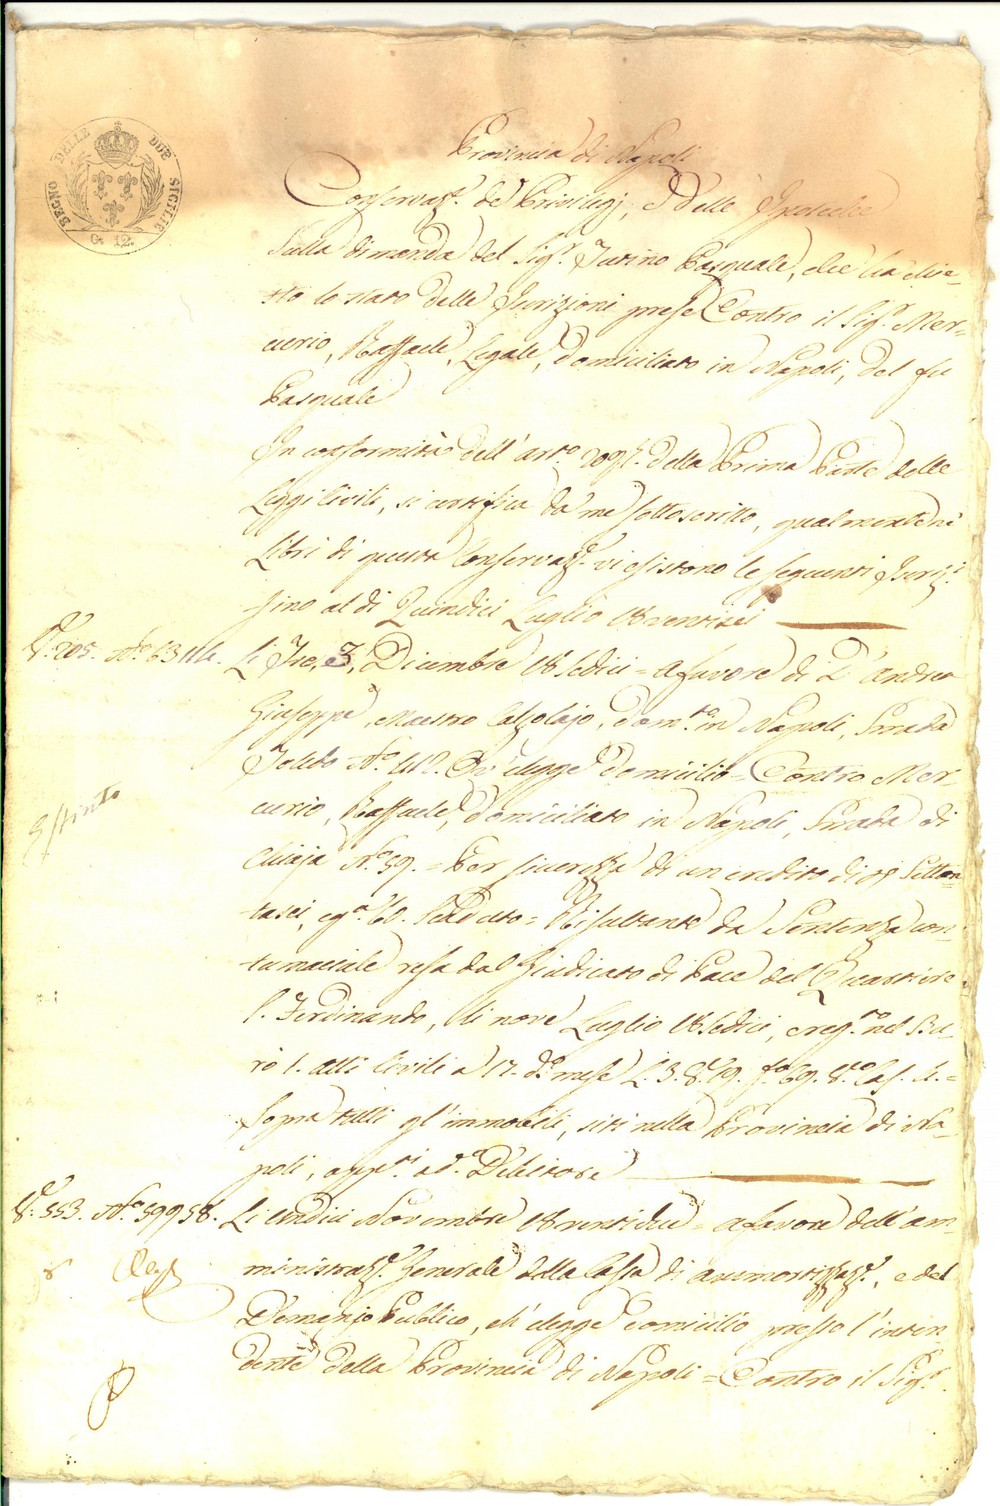 REGNO DELLE DUE SICILIE
G. 12.
Provincia di Napoli
Conservaz.e de' Privilegj, e delle Ipoteche
Sulla dimanda del Sig.r Turino Pasquale, che ha chie-
sto lo stato delle Iscrizioni prese Contro il Sig.r Mer-
curio, Raffaele, Legale, domiciliato in Napoli, del fu
Pasquale
In conformità dell'art.o della Prima Parte delle
Leggi Civili, si certifica da me sottoscritto, qualmente ne'
Libri di questa Conservaz.e vi esistono le seguenti Iscriz.i
sino al di Quindici Luglio 18ventisei
V.e 205. N.o 6311
Li Tre, 3, Dicembre 18sedici = a favore di D'andrea
Giuseppe, Maestro Calzolajo, dom.to in Napoli, Strada
Toledo N.o Ch'elegge domicilio = Contro Mer-
curio, Raffaele, domiciliato in Napoli, Strada di
Estinto
Chiaja N.o 59. = Per sicurezza di un credito di Settan-
tasei, e g.a 60. Scaduto = Risultante da Sentenza con-
tumaciale resa dal Giudicato di Pace del Quartiere
S. Ferdinando, li nove Luglio 18sedici, e reg.ta nel Bu-
rò 1. atti Civili a 17. d.o mese L. 3. V. 69. f.o 69. V.o Cas. A. =
Sopra tutti gl'immobili, siti nella Provincia di Na-
poli, app.ti a d.o Debitore
V.e 553. N.o 59958.
Li undici Novembre 18ventidue = a favore dell'am-
ministraz.e Generale della Cassa di ammortizzaz.e, e del
Demanio Pubblico, ch'elegge domicilio presso l'inten-
dente della Provincia di Napoli = Contro il Sig.r